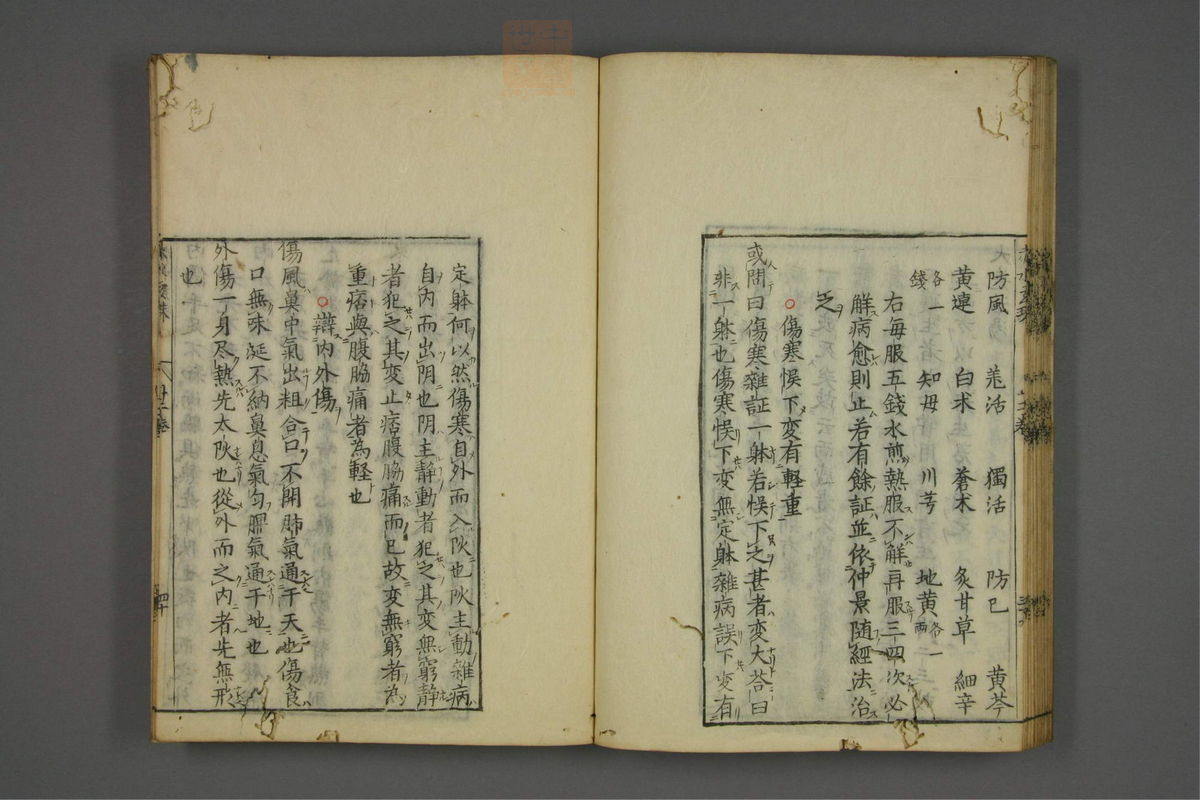 防風　羌活　獨活　防已　黄芩
黄連　白朮　蒼朮　炙甘草　細辛
各一錢　知母　川芎　地黄各一兩
右毎服五錢水煎熱服不觧再服三四次必
觧病愈則止若有餘証並依仲景随經法治
之
○傷寒悮下変有軽重
或問曰傷寒雑証一躰若悮下之甚者変大荅曰
非一躰也傷寒悮下変無定躰雑病誤下変有
定躰何以然傷寒自外而入阦也阦主動雑病
自内而出阴也阴主静動者犯之其変無窮静
者犯之其変止痞腹脇痛而已故変無窮者為
重痞與腹脇痛者為軽也
○辯内外傷
傷風鼻中氣出粗合口不開肺氣通于天也傷食
口無味涎不納鼻息氣匀脾氣通于地也
外傷一身尽熱先太阦也從外而之内者先無形
也